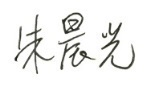 朱晨光